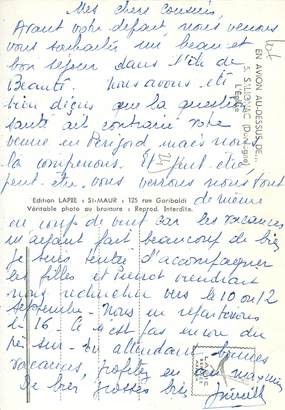 Mes chers cousins,
Avant votre départ, nous venons
vous souhaiter un beau et
bon séjour dans l'Ile de
Beauté. Nous avons été
bien déçus que la question
santé ait contrarié votre
venue en Périgord mais nous
la comprenons. Et peut être
peut-être vous verrons nous tout
de même
en coup de vent car les vacances
m'ayant fait beaucoup de bien
je suis tentée d'accompagner
les filles et Pierrot viendrait
nous rechercher vers le 10 ou 12
septembre - Nous en repartirons
le 16 - Ce n'est pas encore du
sûr - En attendant bonnes
vacances, profitez en au maximum
De bien grosses bises
EN AVION AU-DESSUS DE...
5. SALIGNAC (Dordogne)
L'Eglise
Edition LAPIE : St-MAUR : 125 rue Garibaldi
Véritable photo au bromure : Reprod. Interdite.
LAPIE